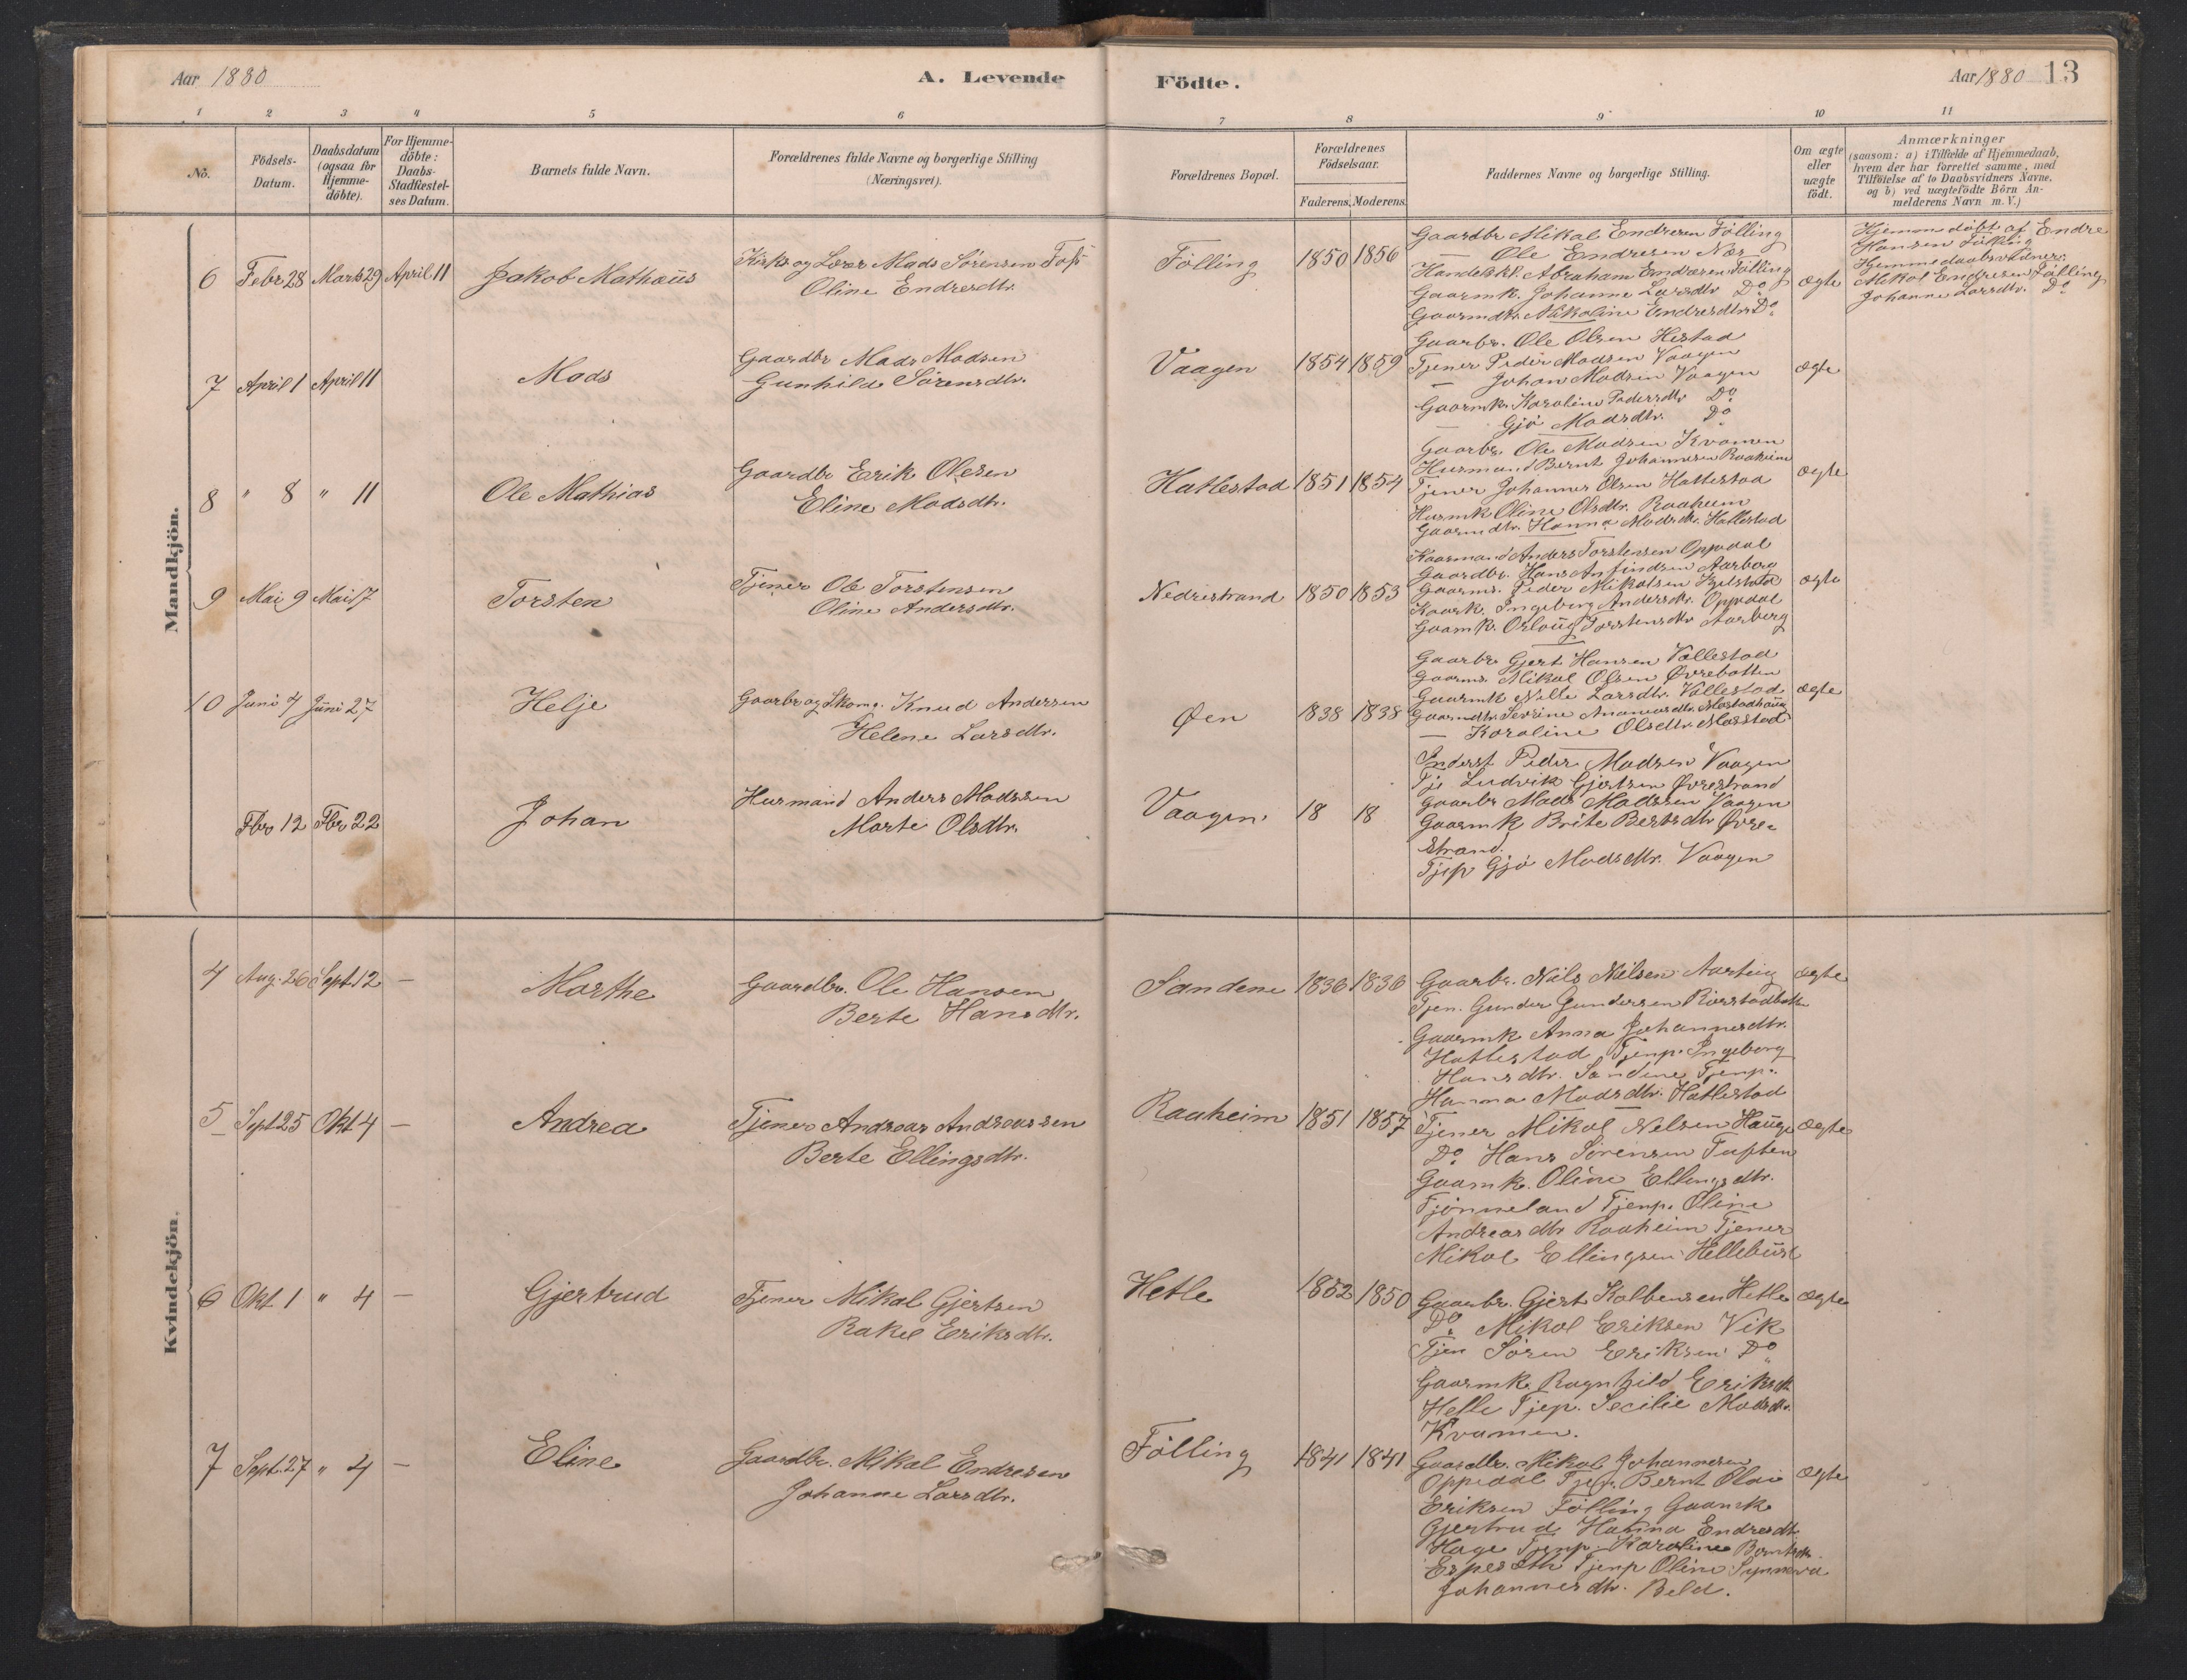 Aar 1880
A. Levende
Födte.
Aar 1880 13
1 2 3 4 5 6 7 8 9 10 11
No.
Födsels-
Datum.
Daabsdatum
(ogsaa for
Hjemme-
döbte).
For Hjemme-
döbte:
Daabs-
Stadfæstel-
ses Datum.
Barnets fulde Navn.
Forældrenes fulde Navne og borgerlige Stilling
(Næringsvei).
Forældrenes Bopæl.
Forældrenes
Födselsaar.
Faderens. Moderens.
Faddernes Navne og borgerlige Stilling.
Om ægte
eller
uægte
födt.
Anmærkninger
(saasom: a) i Tilfælde af Hjemmedaab,
hvem der har forrettet samme, med
Tilföielse af to Daabsvidners Navne,
og b) ved uægtefödte Börn An-
melderens Navn m. V.)
Mandkjön.
6 Febr 28 Marts 29 April 11 Jakob Mathæus
Kirks og Lærer Mads Sörensen Foss
Oline Endresdtr.
Fölling 1850 1856
Gaardbr Mikal Endresen Fölling
— Ole Endresen Næs
Handelskl. Abraham Endresen Fölling
Gaarmk. Johanne Larsdtr Do
Gaarmdtr. Nikoline Endresdtr Do
ægte
Hjemmedöbt af Endre
Hansen Fölling
Hjemmedaabsvidner:
Mikal Endresen Fölling
Johanne Larsdtr. Do
7 April 1 April 11 Mads
Gaardbr Mads Madsen
Gunhilde Sörensdtr.
Vaagen 1854 1859
Gaarbr. Ole Olsen Hestad
Tjener Peder Madsen Vaagen
— Johan Madsen Vaagen
Gaarmk. Karoline Pedersdtr Do
— Gjö Madsdtr. Do
ægte
8 " 8 " 11 Ole Mathias
Gaardbr Erik Olesen
Eline Madsdtr.
Hatlestad 1851 1854
Gaarbr Ole Madsen Kvamen
Husmand Bernt Johannesen Raaheim
Tjener Johannes Olsen Hatlestad
Husmk Oline Olsdtr. Raaheim
Gaarmdtr. Hanna Madsdtr. Hatlestad
ægte
9 Mai 9 Mai 17 Torsten
Tjener Ole Torstensen
Oline Andersdtr.
Nedrestrand 1850 1853
Kaarmand Anders Torstensen Oppedal
Gaardbr. Hans Anfindsen Aarberg
Gaarms. Peder Mikalsen
Kaark. Ingeborg Andersdtr. Oppdal
Gaamk. Torstensdtr Aarberg
ægte
10 Juni 4 Juni 27 Helje
Gaarbr og Skom. Knud Andersen
Helene Larsdtr.
Øen 1838 1838
Gaarbr Gjert Hansen Vallestad
Gaarms. Mikal Olsen Øvrebotten
Gaarmk Nille Larsdtr. Vallestad
Gaarmdtr. Severine
— Karoline Olsdtr.
ægte
Fbr 12 Fbr 22 Johan
Husmand Anders Madssen
Marte Olsdtr.
Vaagen. 18 18
Inderst Peder Madsen Vaagen
Tje Ludvik Gjertsen Øvrestrand
Gaarbr Mads Madssen Vaagen
Gaarmk Brite Bertsdtr Øvre-
strand.
Tjep Gjö Madsdtr. Vaagen
Kvindekjön.
4 Aug. 26 Sept. 12 — Marthe
Gaardbr. Ole Hansen
Berte Hansdtr.
Sandene 1836 1836
Gaarbr. Nils Nilsen
Tjen. Gunder Gundersen
Gaarmk Anna Johannesdtr.
Hatlestad Tjenp. Ingeborg
Hansdtr. Sandene Tjenp.
Hanna Madsdtr. Hatlestad
ægte
5 Sept 25 Okt 4 — Andrea
Tjener Andreas Andreassen
Berte Ellingsdtr.
Raaheim 1851 1857
Tjener Mikal Nelsen Hauge
Do Hans Sörensen Tuften
Gaamk. Oline Ellingsdtr.
Tjönneland Tjenp. Oline
Andreasdtr Raaheim Tjener
Mikal Ellingsen Hellebust
ægte
6 Okt 1 " 4 — Gjertrud
Tjener Mikal Gjertsen
Rakel Eriksdtr.
Hetle 1852 1850
Gaarbr. Gjert Kolbensen Hetle
Do Mikal Eriksen Vik
Tjen Sören Eriksen Do
Gaarmk. Ragnhild Eriksdtr
Helle Tjep. Secilie Madsdtr.
Kvamen.
ægte
7 Sept. 27 " 4 — Eline
Gaardbr. Mikal Endresen
Johanne Larsdtr.
Fölling 1841 1841
Gaardbr. Mikal Johannesen
Oppedal Tjep. Bernt Olai
Eriksen Fölling Gaarmk
Gjertrud Hanna Endresdtr.
Hage Tjenp. Karoline Berntsdtr.
Espeseth Tjenp Oline Synneva
Johannesdtr. Beld.
ægte